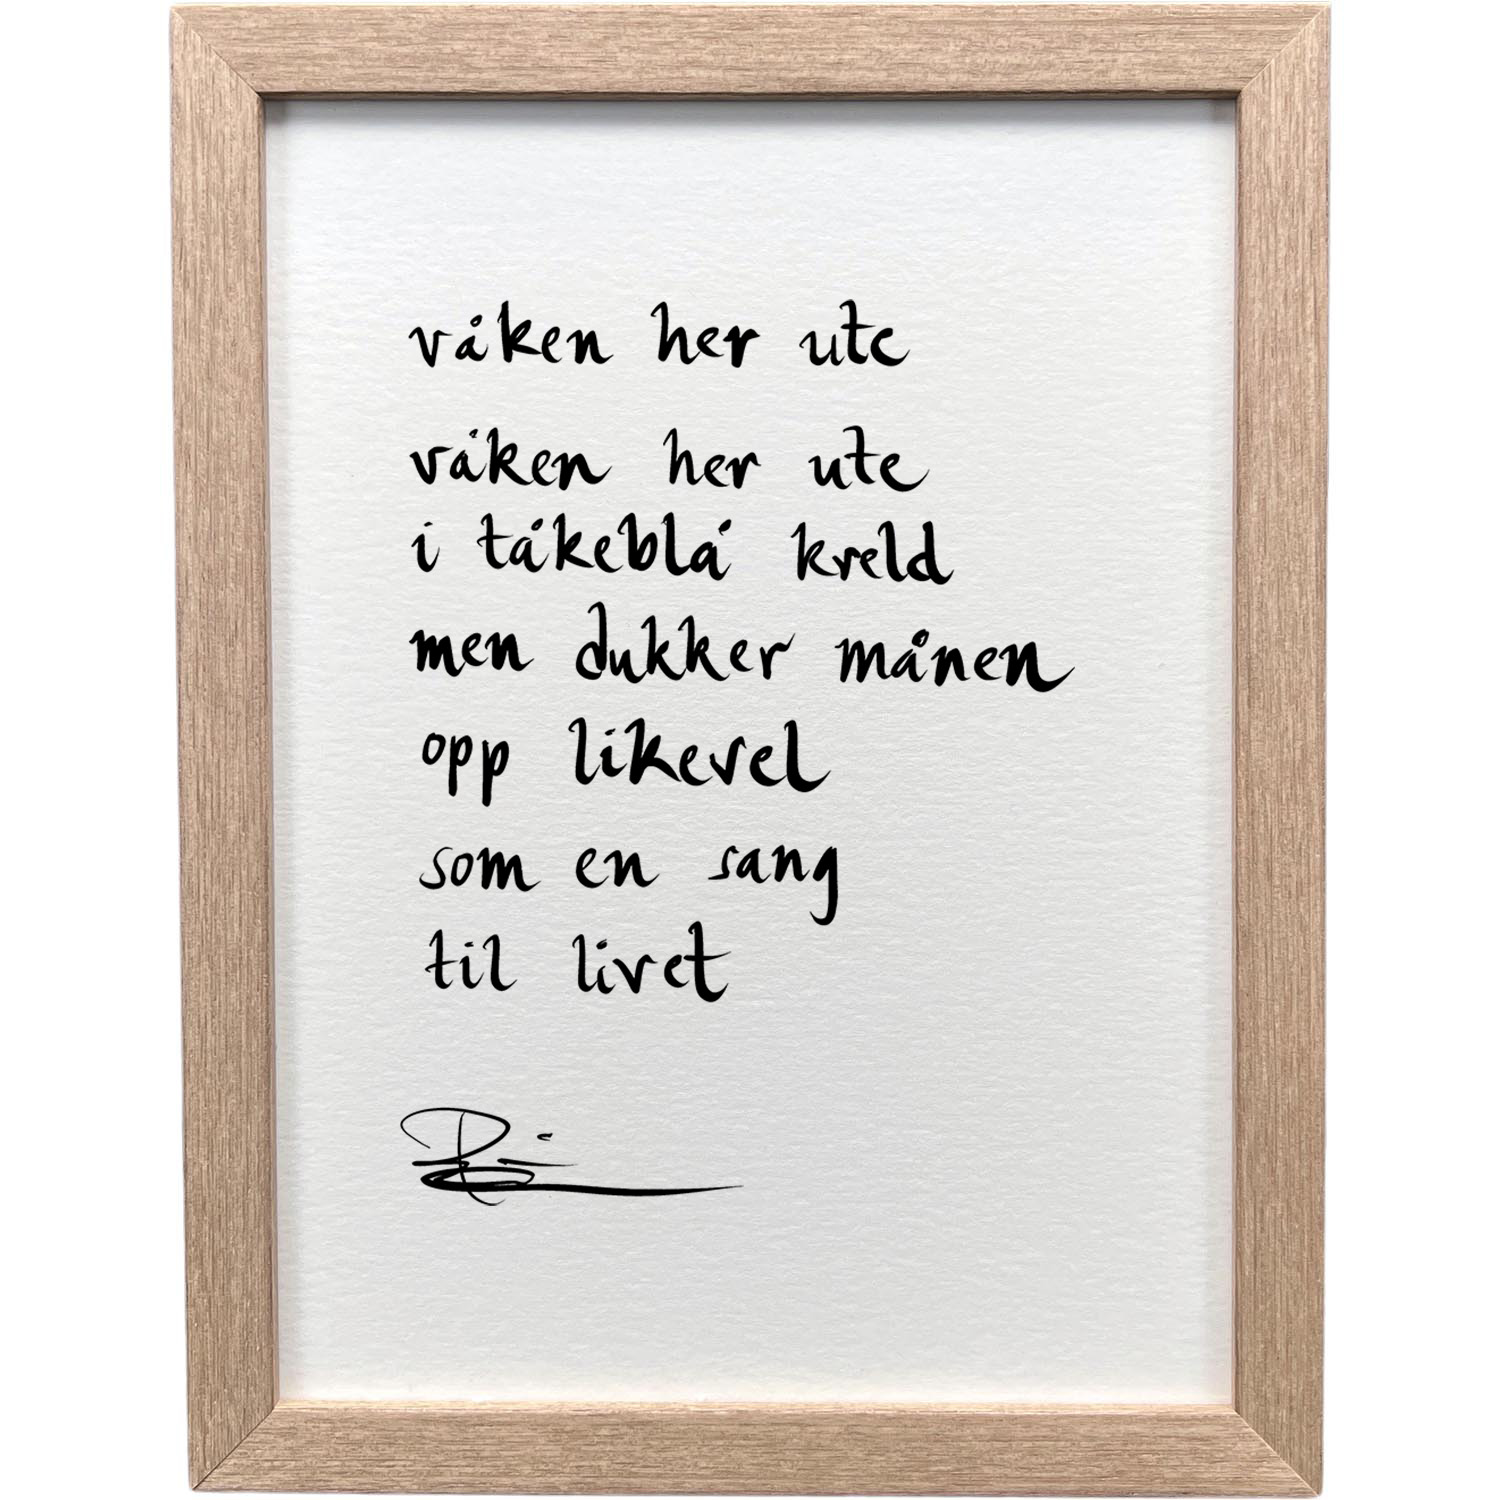 våken her ute
våken her ute
i tåkeblå kveld
men dukker månen
opp likevel
som en sang
til livet